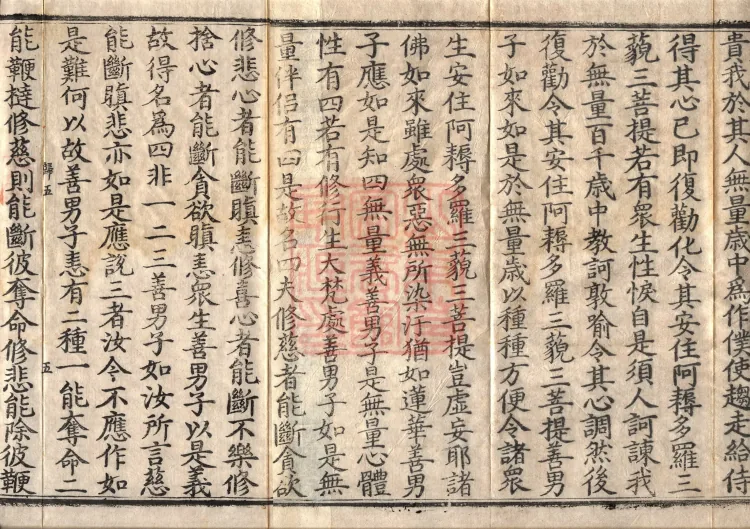 貴我於其人無量歲中為作僕使趨走給侍
得其心已即復勸化令其安住阿耨多羅三
藐三菩提若有眾生性悷自是須人訶諫我
於無量百千歲中教訶敦喻令其心調然後
復勸令其安住阿耨多羅三藐三菩提善男
子如來如是於無量歲以種種方便令諸眾
生安住阿耨多羅三藐三菩提豈虛妄耶諸
佛如來雖處眾惡無所染汙猶如蓮華善男
子應如是知四無量義善男子是無量心體
性有四若有修行生大梵處善男子如是無
量伴侶有四是故名四夫修慈者能斷貪欲
修悲心者能斷瞋恚修喜心者能斷不樂修
捨心者能斷貪欲瞋恚眾生善男子以是義
故得名為四非一二三善男子如汝所言慈
能斷瞋悲亦如是應說三者汝今不應作如
是難何以故善男子恚有二種一能奪命二
歸五
五
能鞭撻修慈則能斷彼奪命修悲能除彼鞭